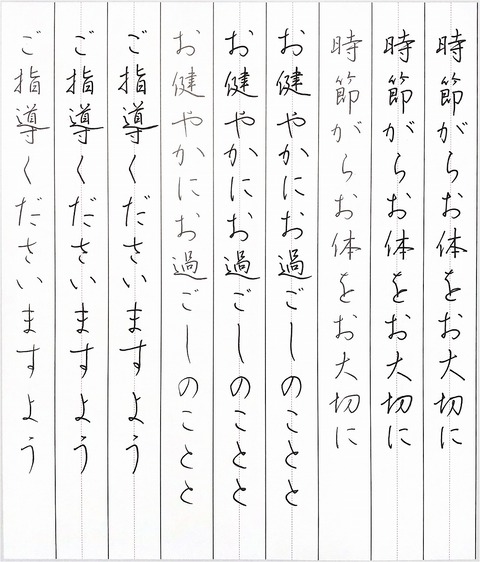 時節がらお体をお大切に
時節がらお体をお大切に
時節がらお体をお大切に
お健やかにお過ごしのことと
お健やかにお過ごしのことと
お健やかにお過ごしのことと
ご指導くださいますよう
ご指導くださいますよう
ご指導くださいますよう